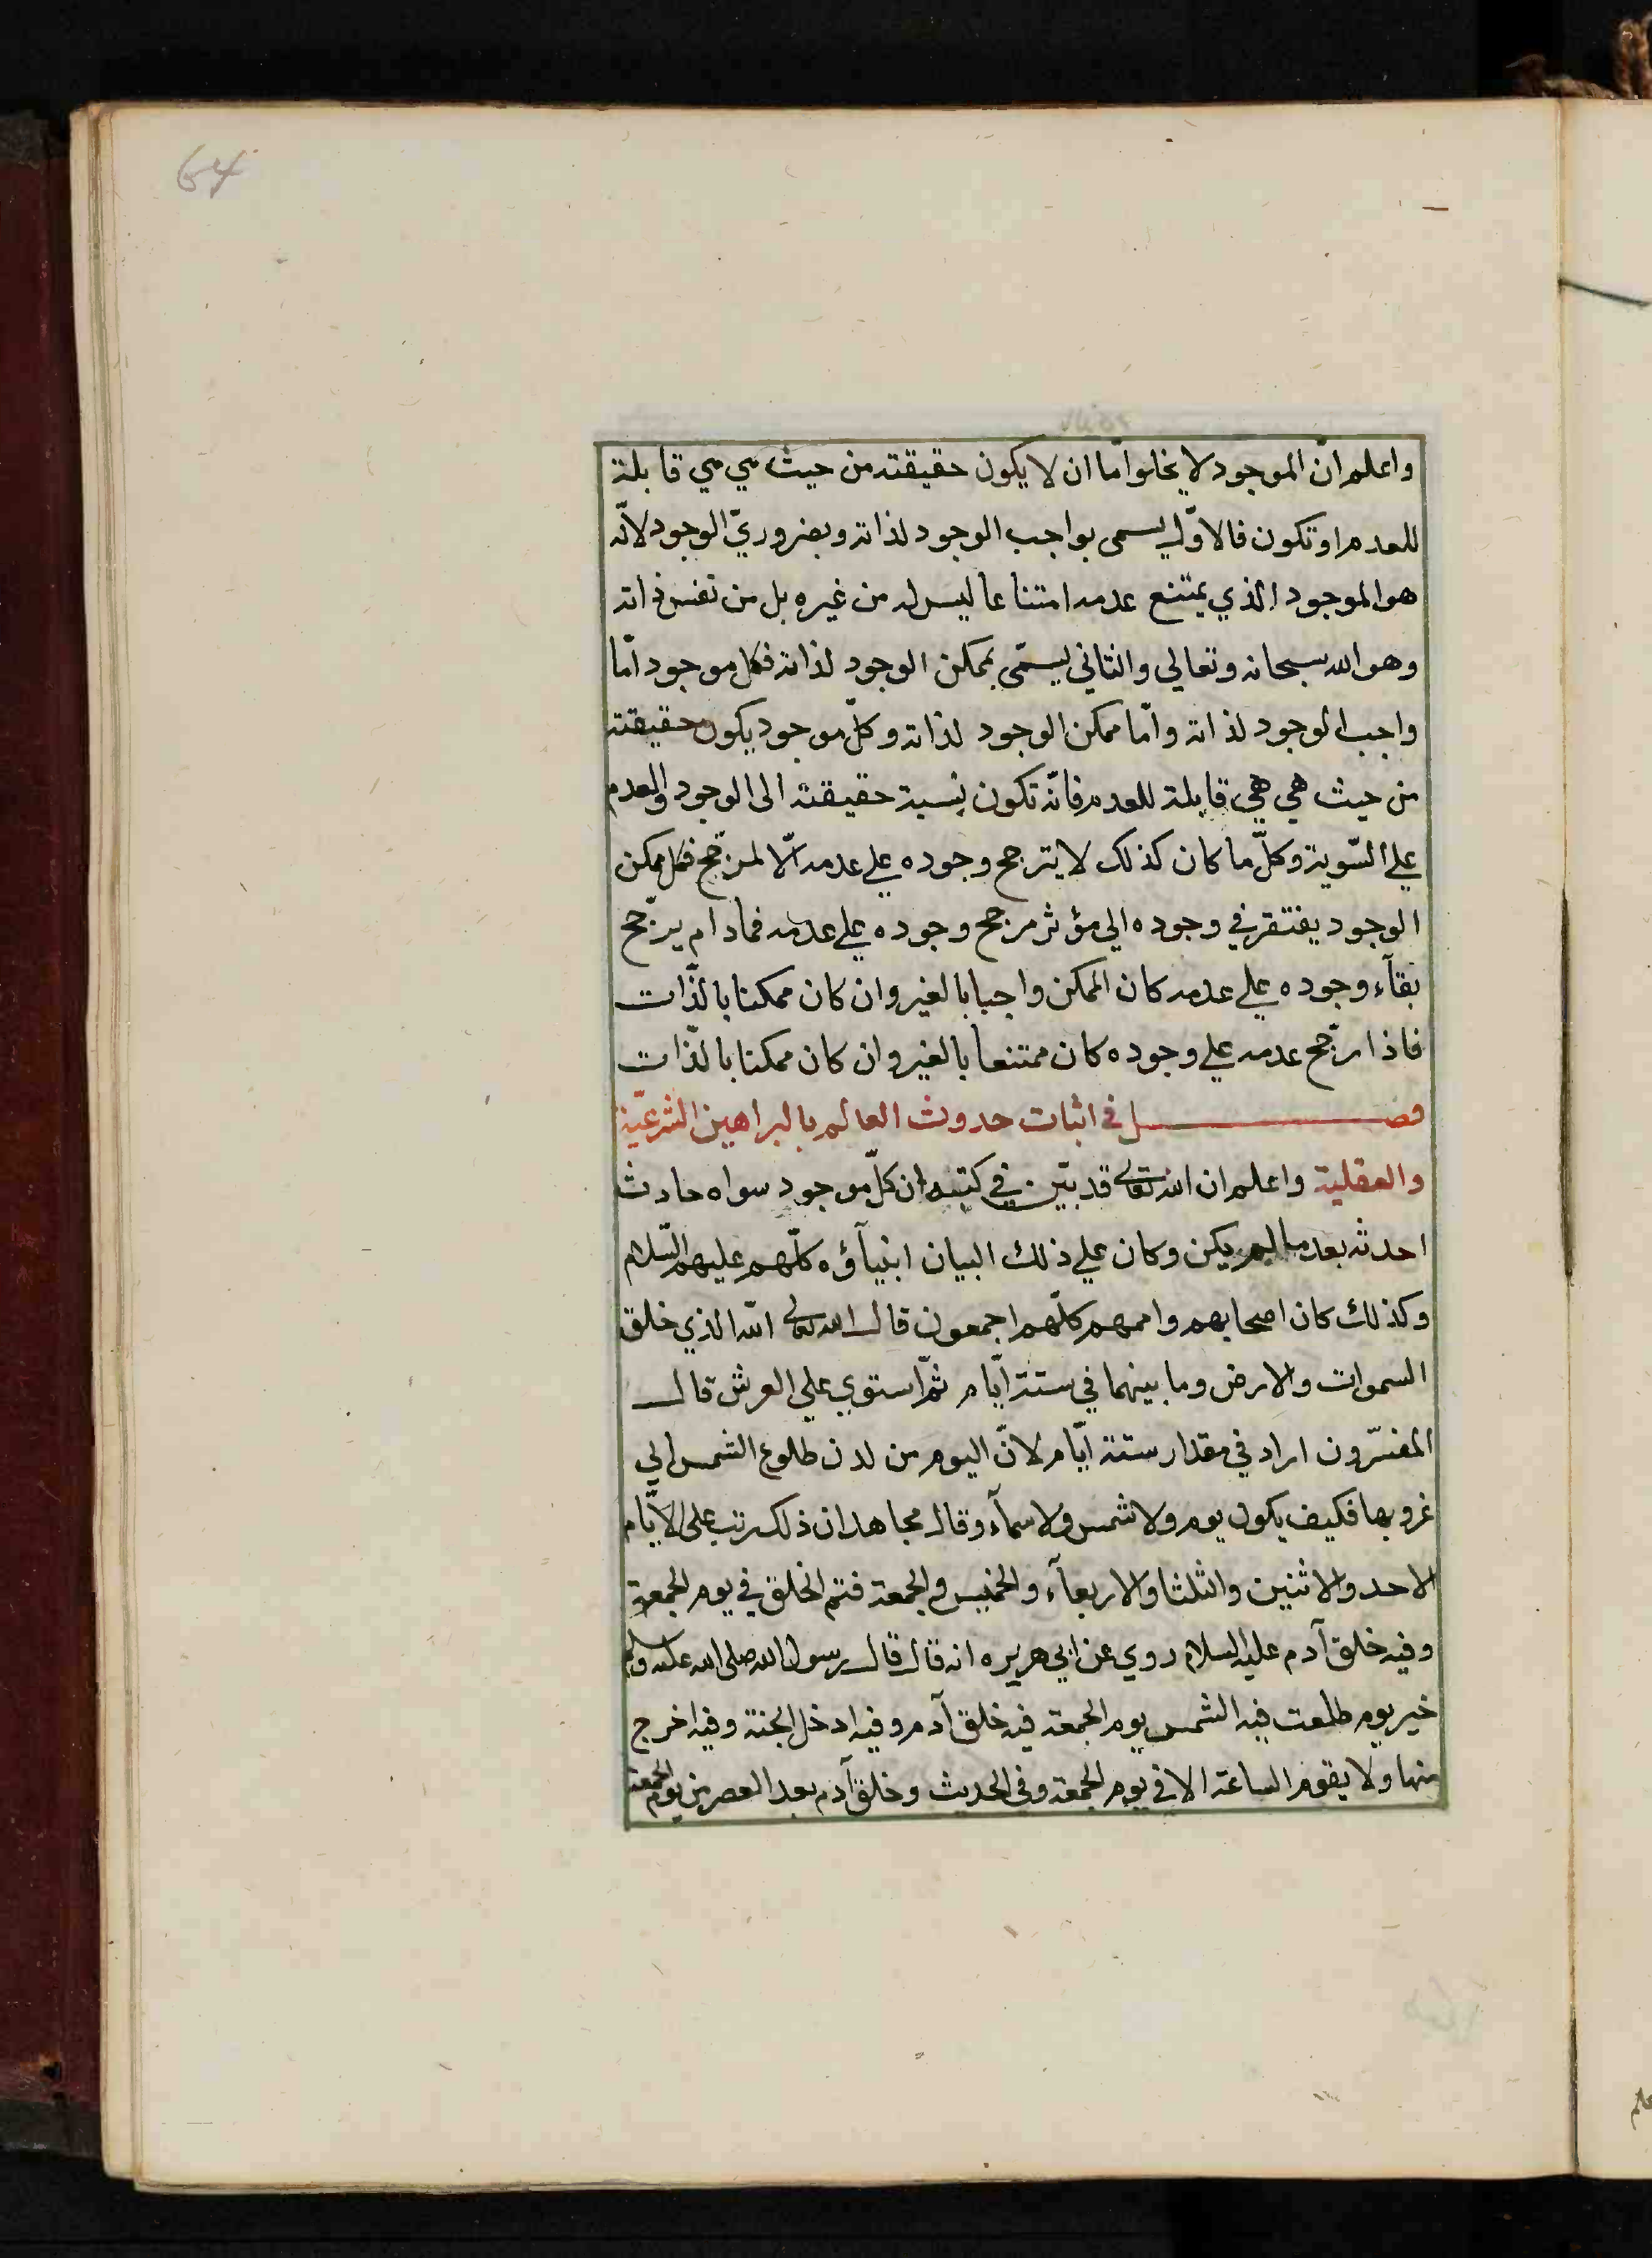 64
واعلم انّ الموجود لا يخلوا امّا ان لا يكون حقيقته من حيث هي هي قابلة
للعدم او تكون فالاوّل يسمى بواجب الوجود لذاته وبضروريّ الوجود لانّه
هو الموجود الذي يمتنع عدمه امتناعا ليس له من غيره بل من نفس ذاته
وهو الله سبحانه وتعالي والثاني يسمّى بممكن الوجود لذاته فكل موجود امّا
واجب الوجود لذاته وامّا ممكن الوجود لذاته وكلّ موجود يكون حقيقته
من حيث هي هي قابلة للعدم فانّه تكون نسبة حقيقته الى الوجود والعدم
علي السّوية وكلّ ما كان كذلك لا يترجح وجوده علي عدمه الّا لمرجّح فكل ممكن
الوجود يفتقر في وجوده الي مؤثر مرجح وجوده علي عدمه فمادام يرجّح
بقآء وجوده علي عدمه كان الممكن واجبا بالغير وان كان ممكنا بالذّات
فاذا رجّح عدمه علي وجوده كان ممتنعا بالغير وان كان ممكنا بالذّات
فصل في اثبات حدوث العالم بالبراهين الشرعيّة
والعقلية واعلم ان الله تعالى قد بيّن في كتبه ان كلّ موجود سواه حادث
احدثه بعد ما لم يكن وكان علي ذلك البيان انبيآؤه كلّهم عليهم السّلام
وكذلك كان اصحابهم واممهم كلّهم اجمعون قال الله تعالى الله الذي خلق
السموات والارض وما بينهما في ستة ايّام ثمّ استوي علي العرش قال
المفسّرون اراد في مقدار ستة ايّام لانّ اليوم من لدن طلوع الشمس الي
غروبها فكيف يكون يوم ولا شمس ولا سمآء وقال مجاهد ان ذلك رتب على الايّام
الاحد والاثنين والثلثا والاربعآء والخميس والجمعة فتم الخلق في يوم الجمعة
وفيه خلق آدم عليه السلام روي عن ابي هريره انه قال قال رسول الله صلى الله عليه وسلم
خير يوم طلعت فيه الشمس يوم الجمعة فيه خلق آدم وفيه ادخل الجنة وفيه اخرج
منها ولا يقوم الساعة الا في يوم الجمعة وفي الحديث وخلق آدم بعد العصر من يوم الجمعة